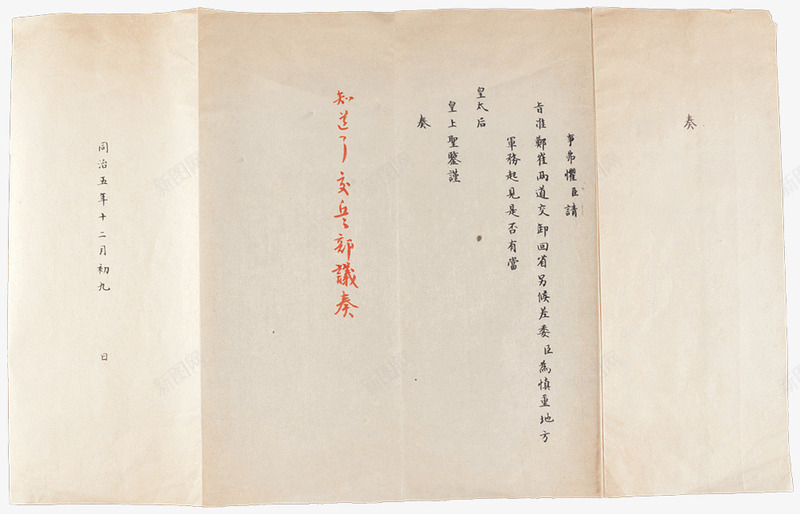 奏
事弟懼臣請
旨准鄭崔兩道交卸回省另候差委臣為慎重地方
軍務起見是否有當
皇太后
皇上聖鑒謹
奏
知道了交兵部議奏
同治五年十二月初九 日